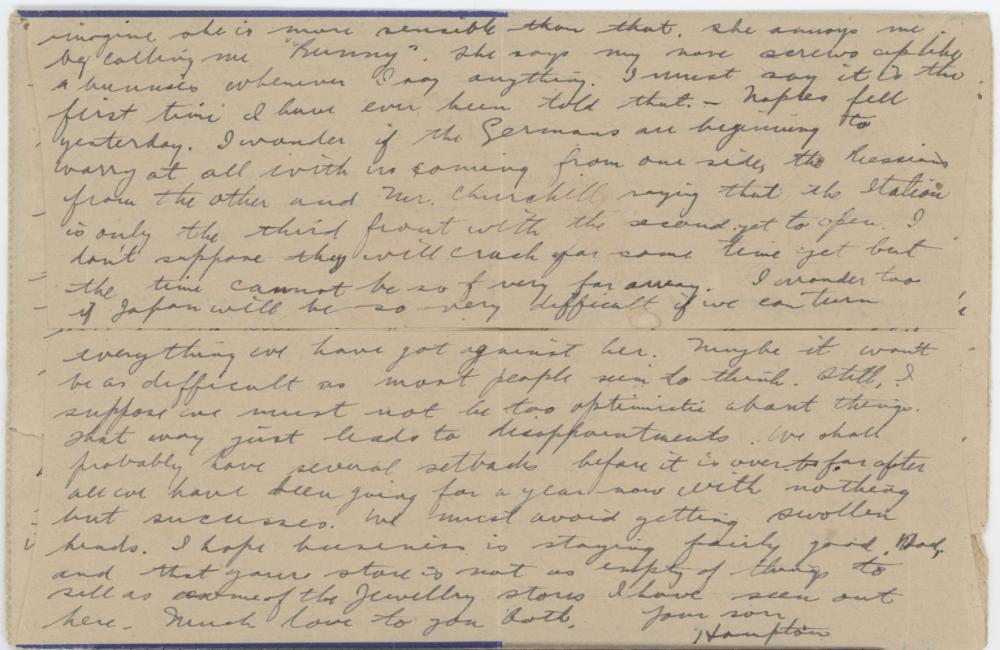 imagine she is more sensible than that. She annoys me
by calling me "Bunny". She says my nose screws up like
a bunnies whenever I say anything. I must say it is the
first time I have ever been told that. – Naples fell
yesterday. I wonder if the Germans are beginning to
worry at all with us coming from one side, the Russians
from the other and Mr. Churchill saying that the Italian
is only the third front with the second yet to open. I
don't suppose they will crack for some time yet but
the time cannot be so very far away. I wonder too
if Japan will be so very difficult if we can turn
everything we have got against her. Maybe it won't
be as difficult as most people seem to think. Still, I
suppose we must not be too optimistic about things.
That way just leads to disappointments. We shall
probably have several setbacks before it is over for after
all we have been going for a year now with nothing
but successes. We must avoid getting swollen
heads. I hope business is staying fairly good, Dad,
and that your store is not as empty of things to
sell as some of the Jewellry stores I have seen out
here. Much love to you both. Your son
Hampton